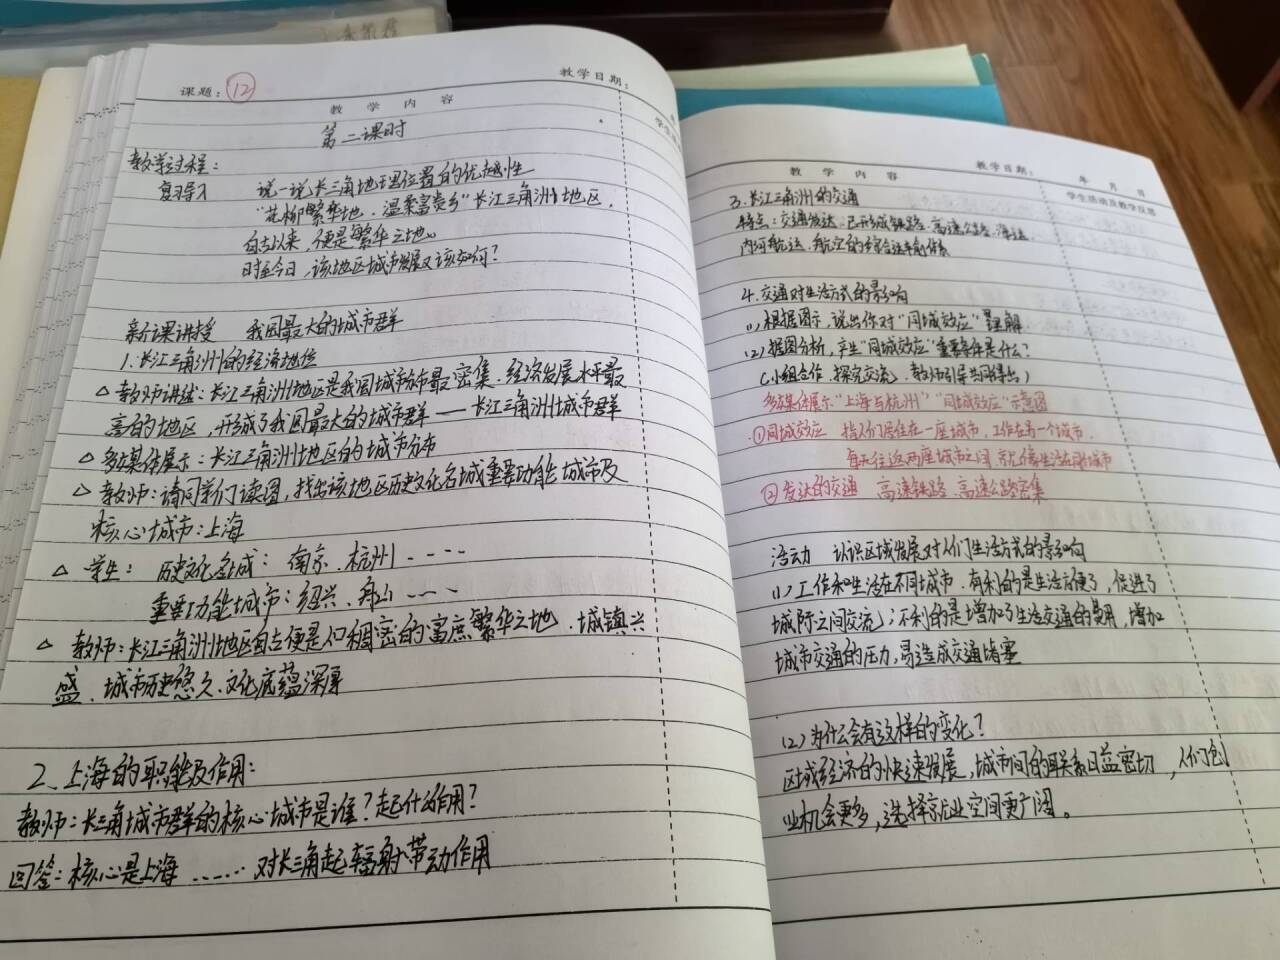 课题：⑫
教学日期：
教 学 内 容
第二课时
教学过程：
复习导入 说一说长三角地理位置的优越性
“花柳繁华地，温柔富贵乡”长江三角洲地区，
自古以来，便是繁华之地。
时至今日，该地区城市发展又该如何？
新课讲授 我国最大的城市群
1.长江三角洲的经济地位
△教师讲述：长江三角洲地区是我国城市分布最密集、经济发展水平最
高的地区，形成了我国最大的城市群——长江三角洲城市群
△多媒体展示：长江三角洲地区的城市分布
△教师：请同学们读图，找出该地区历史文化名城重要功能城市及
核心城市：上海
△学生：历史文化名城：南京、杭州----
重要功能城市：绍兴、舟山----
△教师：长江三角洲地区自古便是人口稠密的富庶繁华之地，城镇兴
盛、城市历史悠久、文化底蕴深厚
2、上海的职能及作用：
教师：长三角城市群的核心城市是谁？起什么作用？
回答：核心是上海……对长三角起辐射带动作用
教 学 内 容
教学日期： 年 月 日
学生活动及教学反思
3.长江三角洲的交通
特点：交通发达，已形成铁路、高速公路、海运、
内河航运、航空的综合运输体系
4.交通对生活方式的影响
(1)根据图示，说出你对“同城效应”理解
(2)据图分析，产生“同城效应”重要条件是什么？
(小组合作，探究交流，教师引导共同得出)
多媒体展示“上海与杭州”“同城效应”示意图
①同城效应 指人们居住在一座城市，工作在另一个城市，
每天往返两座城市之间，就像生活在同一城市
②发达的交通 高速铁路、高速公路密集
活动 认识区域发展对人们生活方式的影响
(1)工作和生活在不同城市，有利的是生活方便了，促进了
城际之间交流；不利的是增加了生活交通的费用，增加
城市交通的压力，易造成交通堵塞
(2)为什么会有这样的变化？
区域经济的快速发展，城市间的联系日益密切，人们创
业机会更多，选择就业空间更广阔。